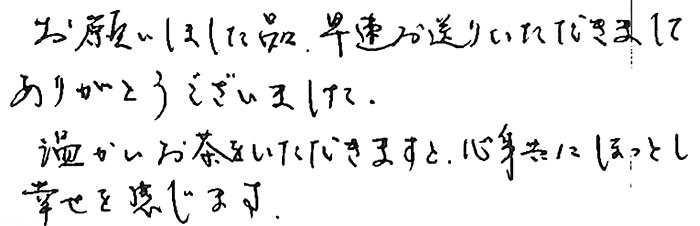 お願いしました品、早速お送りいただきまして
ありがとうございました。
温かいお茶をいただきますと、心身共にほっとし
幸せを感じます。